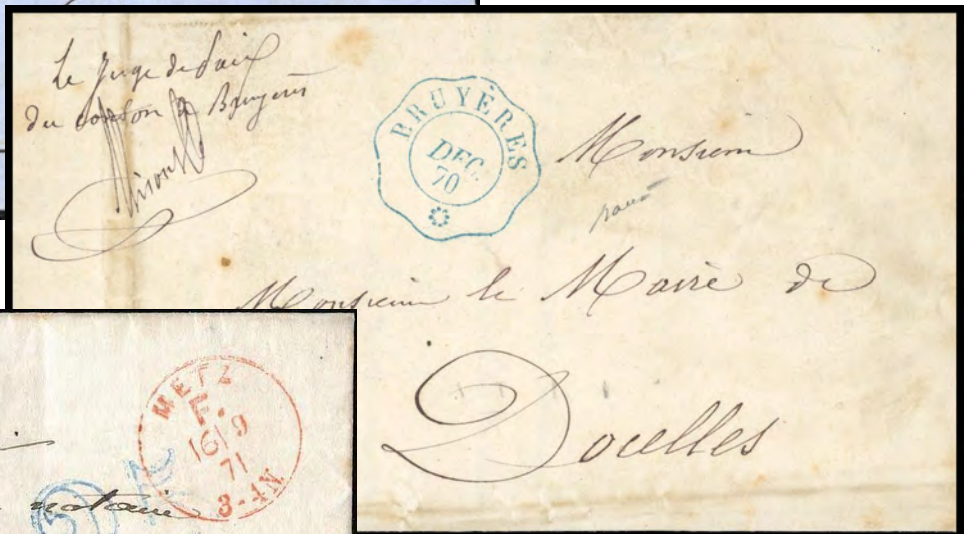 Le Juge de Paix
du canton de Bruyères
BRUYÈRES
DEC.
70
Monsieur
Monsieur le Maire de
Docelles
METZ
F.
16 9
71
3-4N
notaire